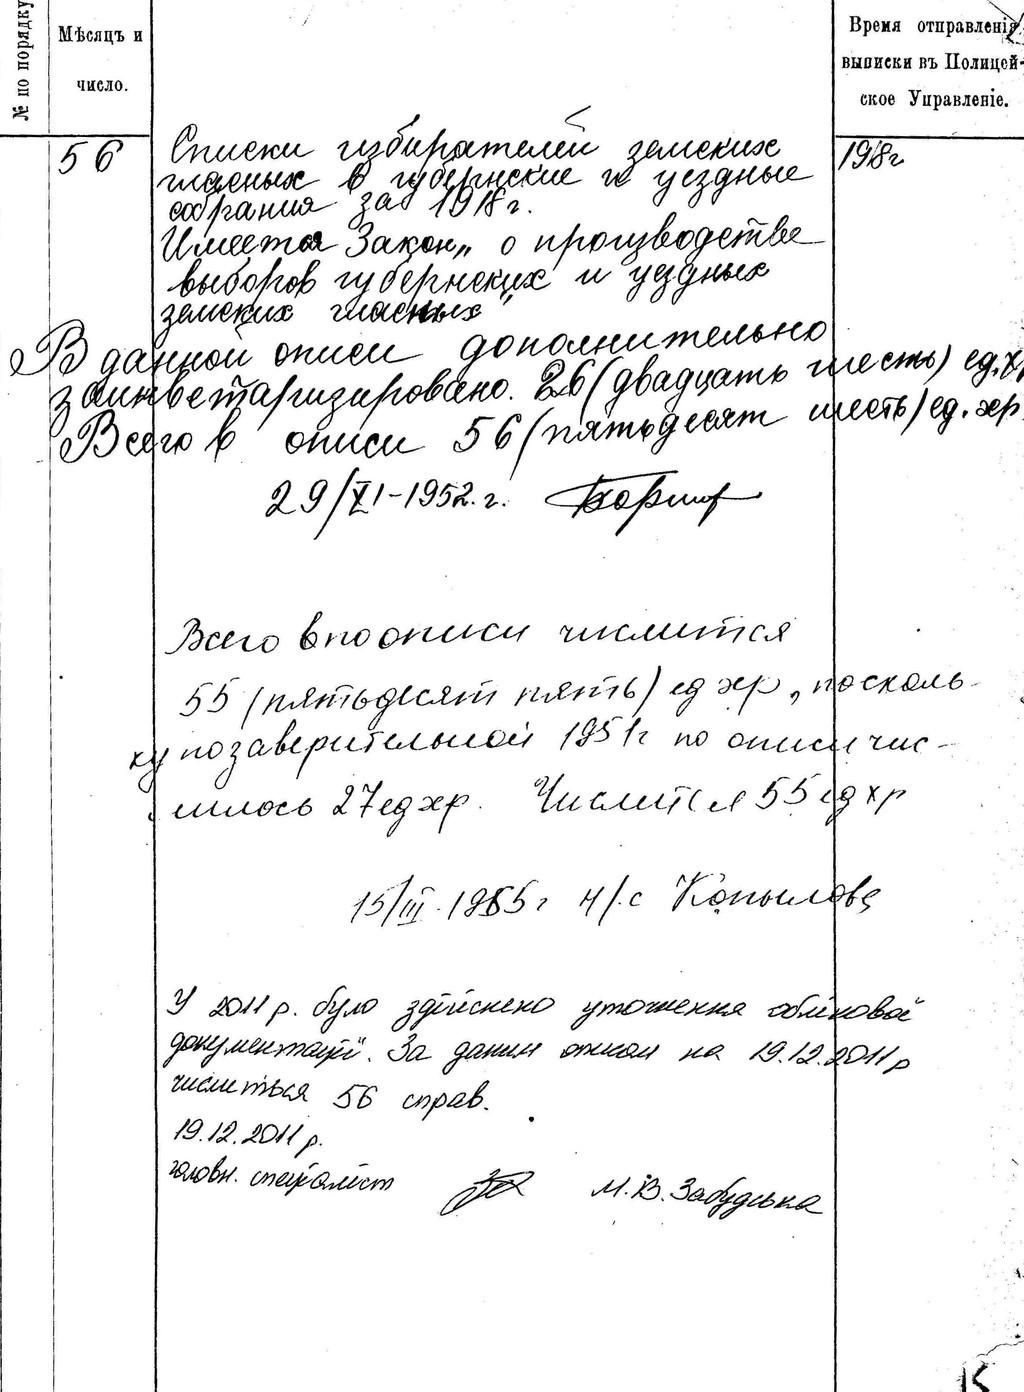 № по порядку
Мѣсяцъ и
число.
Время отправленія
выписки въ Полицей-
ское Управленіе.
56 Списки избирателей земских 1918г
гласных в губернские и уездные
собрания за 1918г.
Имеется Закон „о производстве
выборов губернских и уездных
земских гласных"
В данной описи дополнительно
заинветаризировано. 26 (двадцать шесть) ед.х
Всего в описи 56 (пятьдесят шесть) ед. хр
29/XI-1952.г.
Всего впоописи числится
55 (пятьдесят пять) ед хр, посколь-
ку по заверительной 1951г по описи чис-
лилось 27 ед хр. Числится 55 ед хр
15/III-1955г Н/.с Копылова
У 2011 р. було здійснено уточнення облікової
документації. За даним описом на 19.12.2011р
числиться 56 справ.
19.12.2011 р.
головн. спеціаліст М.В. Забудська
15